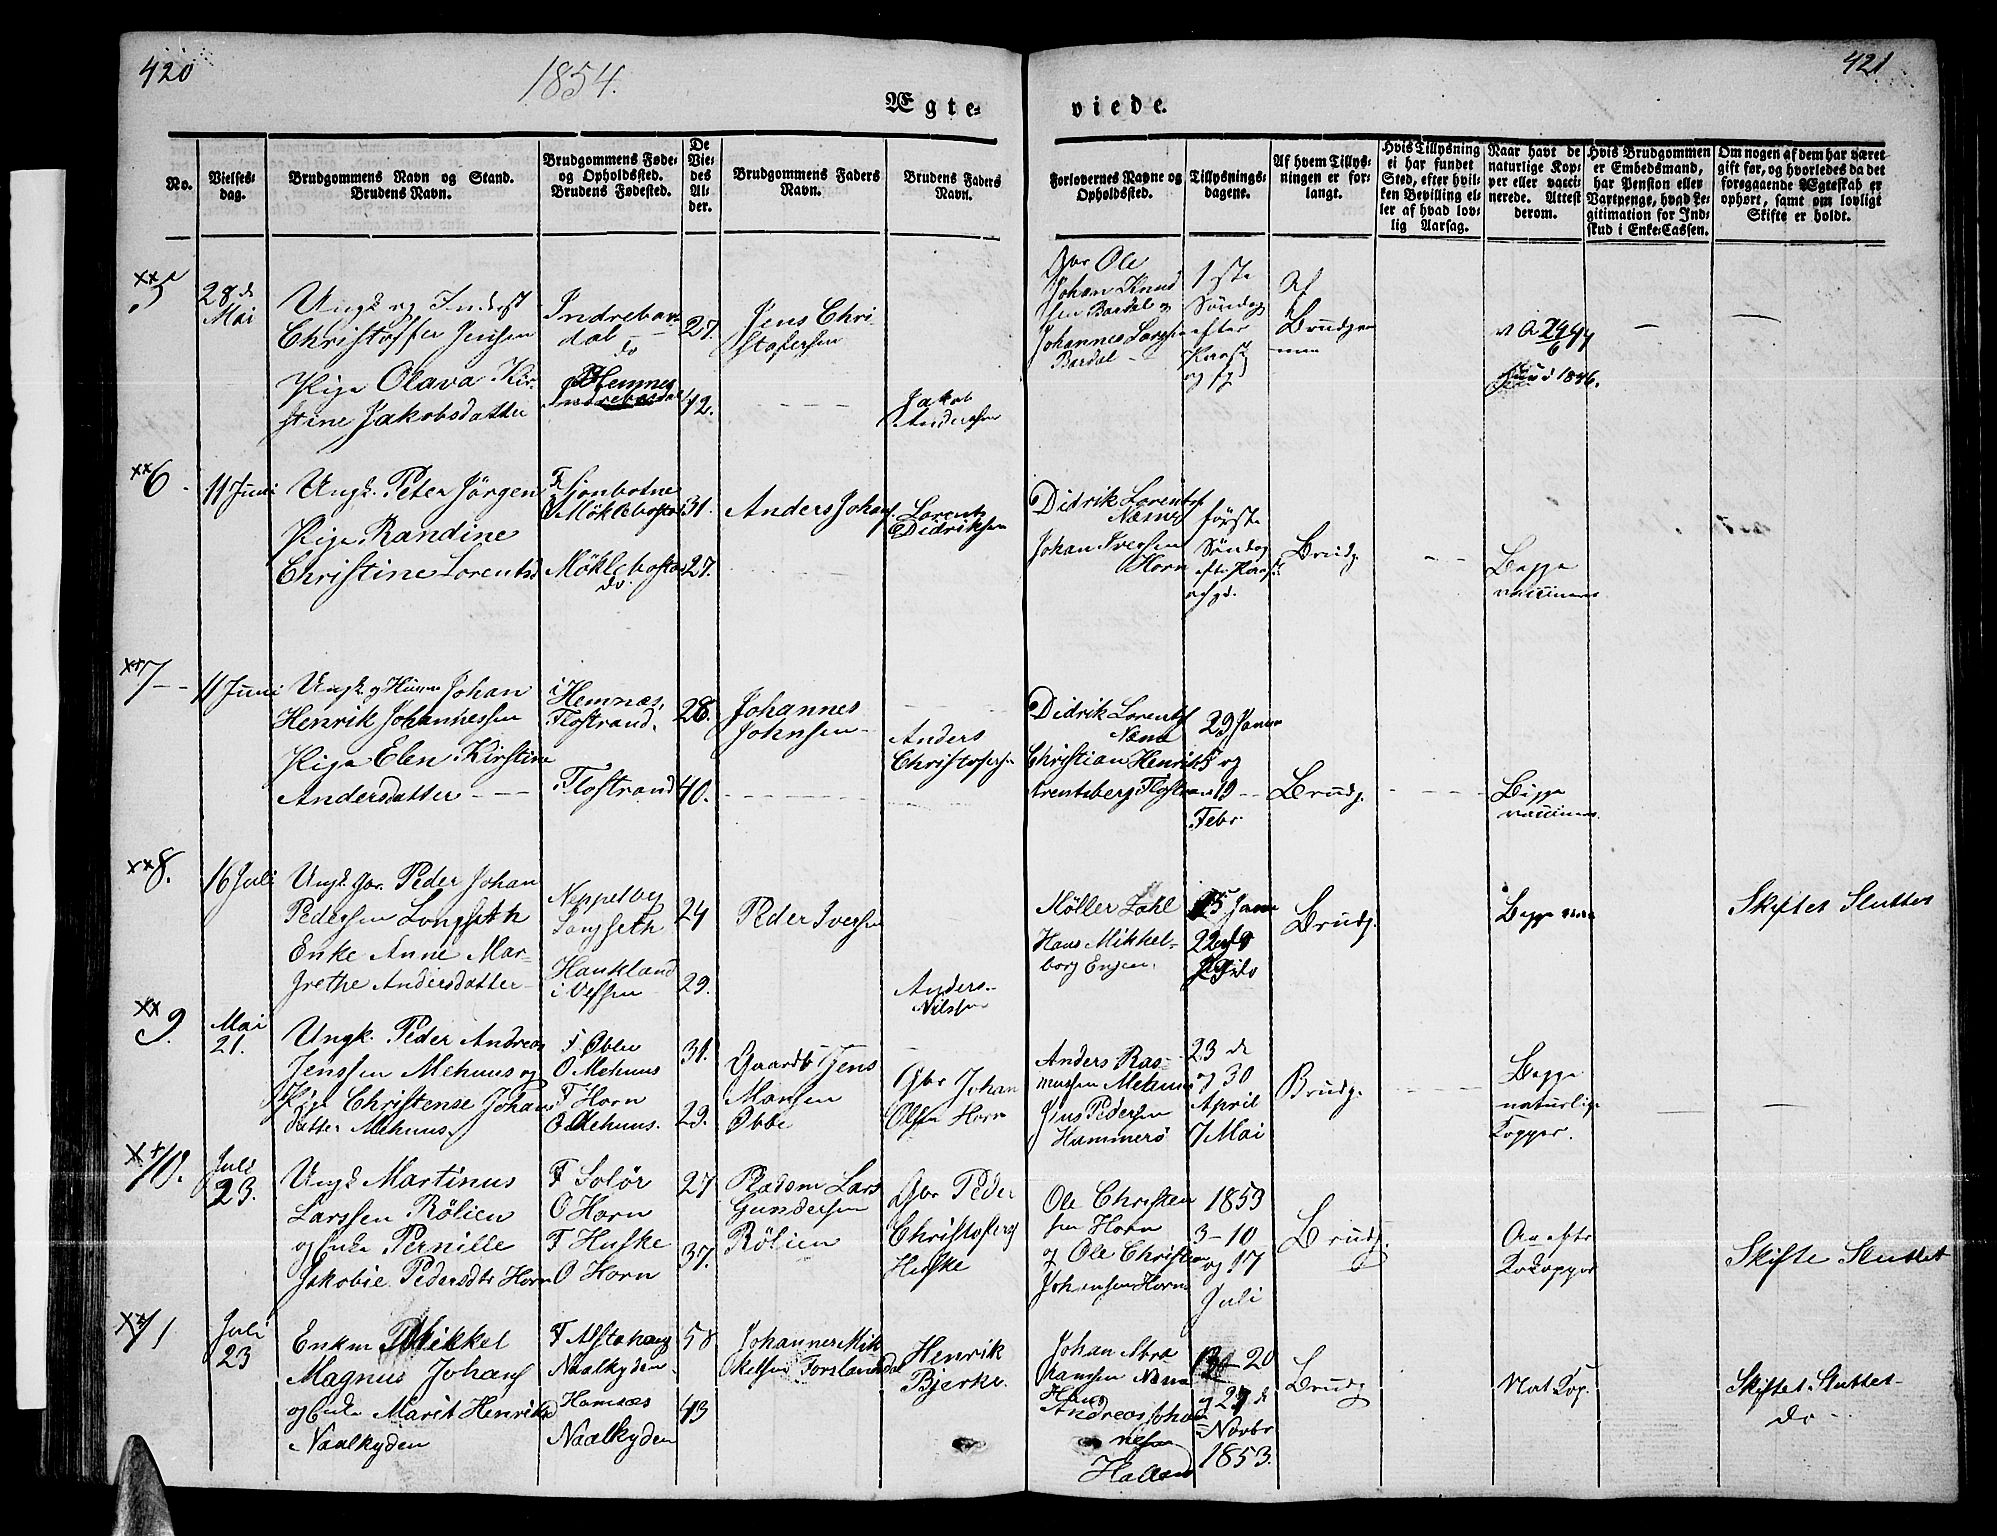 420
1854.
421
Ægte-
viede.
No.
Vielses-
dag.
Brudgommens Navn og Stand.
Brudens Navn.
Brudgommens Føde-
og Opholdssted.
Brudens Fødested.
De
Vie-
des
Al-
der.
Brudgommens Faders
Navn.
Brudens Faders
Navn.
Forlovernes Navne og
Opholdssted.
Tillysnings-
dagene.
Af hvem Tillys-
ningen er for-
langt.
Hvis Tillysning
ei har fundet
Sted, efter hvil-
ken Bevilling el-
ler af hvad lov-
lig Aarsag.
Naar havt de
naturlige Kop-
per eller vacci-
nerede. Attest
derom.
Hvis Brudgommen
er Embedsmand,
har Pension eller
Vartpenge, hvad Le-
gitimation for Ind-
skud i Enke-Cassen.
Om nogen af dem har været
gift før, og hvorledes da det
foregaaende Ægteskab er
ophørt, samt om lovligt
Skifte er holdt.
5
28 de
Mai
Ungk og Inderst
Christoffer Jensen
Pige Olava Kir-
stine Jakobsdatter
Indrebar
dal
do
Hemnes
27.
42.
Jens Chri-
stofersen
Jakob
Andersen
Gbr Ole
Johan Knud
sen Bardal og
Johannes Larssen
Bardal
1ste
Søndag
efter
og
Af
Brudgom
men
1846.
6
11 Juni
Ungk. Peter Jørgen
Pige Randine
Christine Lorentsd
F Sjonbotne
O Møklebosta
Møklebosta
do
31.
27.
Anders Johans
Lorents
Didriksen
Didrik Lorents
Næsne
Johan Iversen
Horn
første
Søndag
Brudg.
Begge
vaccineres
7
11 Juni
Ungk og Huusm Johan
Henrik Johannessen
Pige Elen Kirstine
Andersdatter
i Hemnæs
Flostrand.
Flostrand
28.
40.
Johannes
Johnsen
Anders
Christofersen
Didrik Lorents
Næsne
Christian Henrik
29 Janua
5 og
19
Febr.
Brudg.
Begge
vaccineres.
8.
16 Juli
Ungk Gbr. Peder Johan
Pedersen Langseth
Enke Anne Mar-
grethe Andersdatter
Neppelbg
Langseth
Haukland
i Vefsen
24
29.
Peder Iversen
Anders
Nilsen
Møller Dahl
Hans Mikkel-
borg Engen.
15 Janu
22 do
Brudg.
Begge
Skiftet Sluttet
9.
Mai
21.
Ungk. Peder Andreas
Jenssen Mehuus og
Pige Christense Johans
datter Mehuus
F Øbbe
O Mehuus
F Horn
O Mehuus.
31.
29.
Gaardb Jens
Monsen
Øbbe
Gbr Johan
Olsen Horn
Anders Ras-
mussen Mehuus
Jens Pedersen
Hammerø
23 de
og 30
April
7 Mai
Brudg.
Begge
naturlig
Kopper.
10.
Juli
23.
Ungk Martinus
Larssen Rølien
og Enke Pernille
Jakobie Pedersdtr Horn
F Solør
O Horn
F Huske
O Horn
27
37.
Lars
Gundersen
Rølien
Gbr Peder
Christofersen
Huske
Ole Christen
sen Horn
og Ole Christian
Johansen Horn
1853
3-10
og 17
Juli
Brudg.
Skifte Sluttet
11
Juli
23
Enkm Mikkel
Magnus Johans
og Enke Marit Henriksd
Naalkyden
F Alstahaug
Naalkyden
Hemnæs
Naalkyden
58
43
Johannes Mik
kelsen Forslandsdal
Henrik
Bjerke.
Johan Abra
hamsen Næsne
Hans
Andreas Johan
nesen
Halland
13-20
og 27 de
Novbr
1853.
Brudg
Nat Kop.
Skiftet Sluttet
do